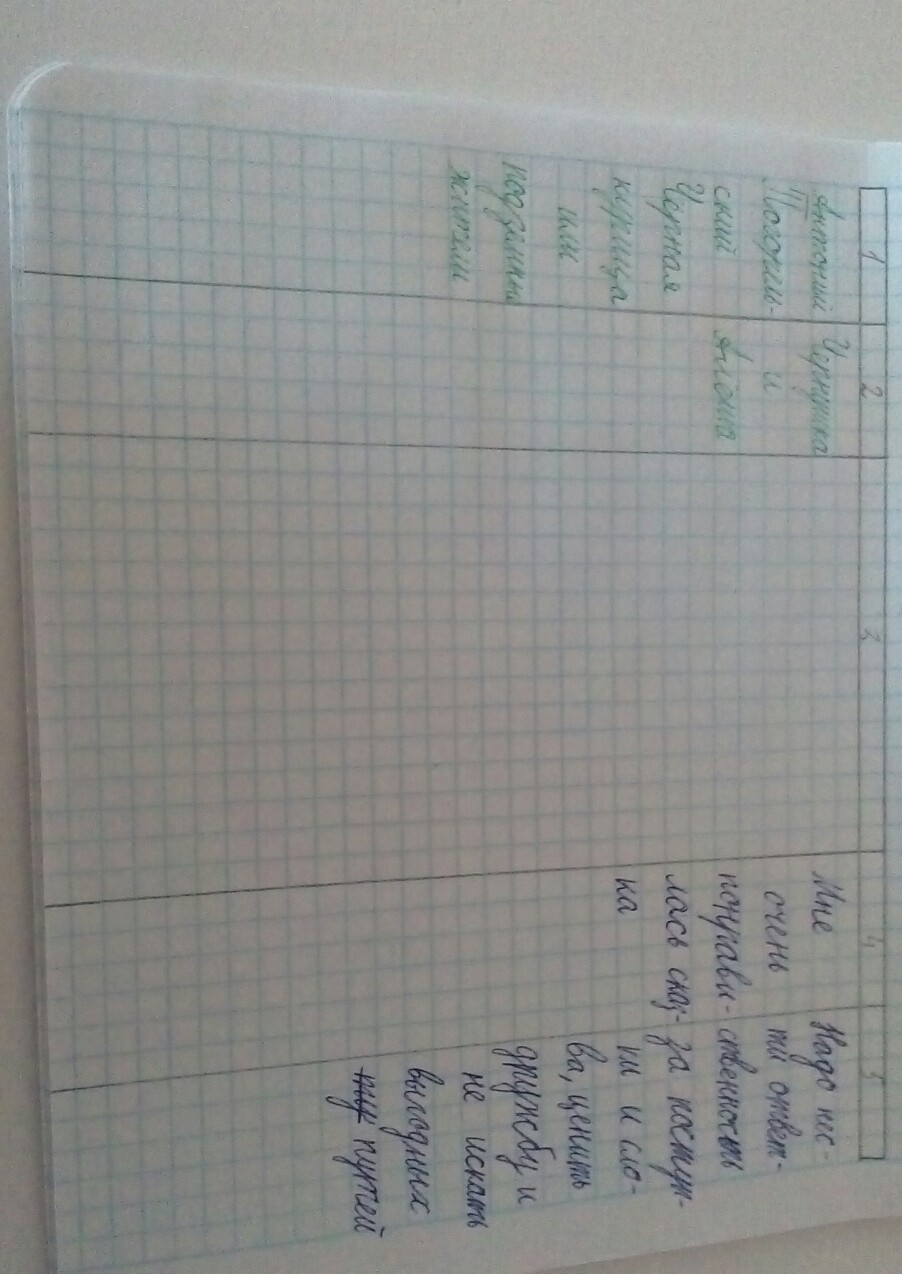 1 2 3 4 5
Антоний
Погорель-
ский
Черная
курица
или
подземные
жители
Чернушка
и
Алёша
Мне
очень
понрави-
лась сказ-
ка
Надо нес-
ти ответ-
ственность
за поступ-
ки и сло-
ва, ценить
дружбу и
не искать
выгодных
путей